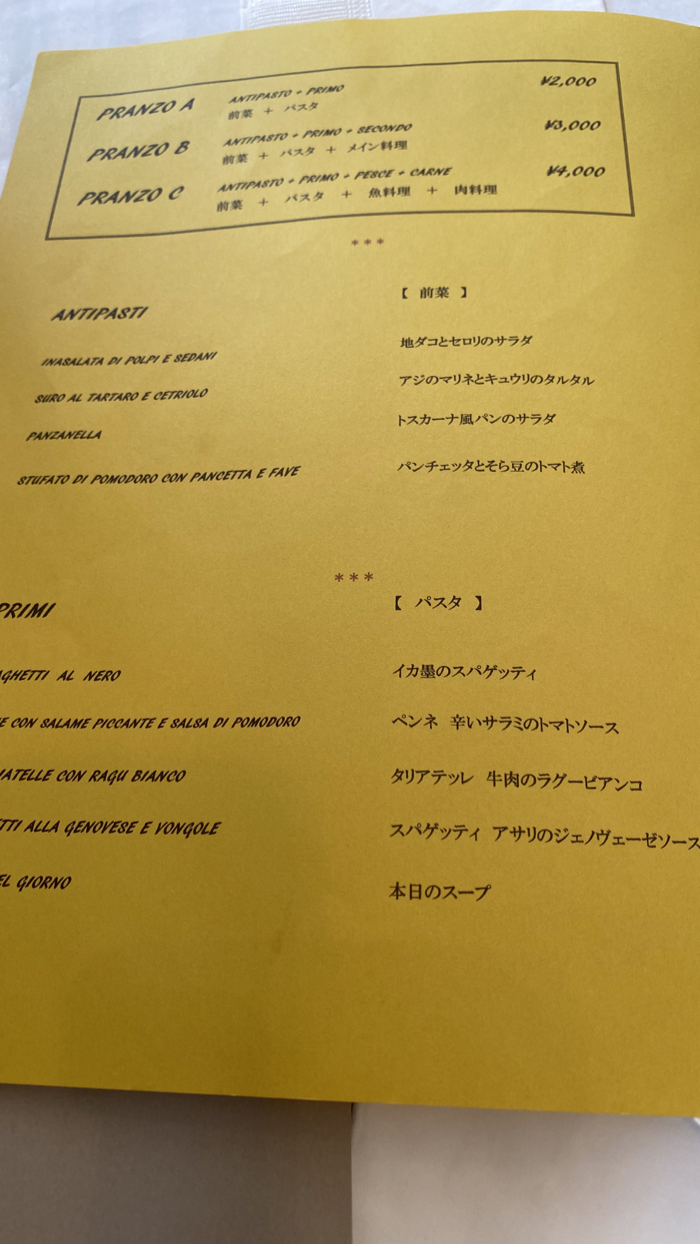 PRANZO A ANTIPASTO + PRIMO ¥2,000
前菜 + パスタ
PRANZO B ANTIPASTO + PRIMO + SECONDO ¥3,000
前菜 + パスタ + メイン料理
PRANZO C ANTIPASTO + PRIMO + PESCE + CARNE ¥4,000
前菜 + パスタ + 魚料理 + 肉料理
***
ANTIPASTI 【 前菜 】
INASALATA DI POLPI E SEDANI 地ダコとセロリのサラダ
SURO AL TARTARO E CETRIOLO アジのマリネとキュウリのタルタル
PANZANELLA トスカーナ風パンのサラダ
STUFATO DI POMODORO CON PANCETTA E FAVE パンチェッタとそら豆のトマト煮
***
PRIMI 【 パスタ 】
AGHETTI AL NERO イカ墨のスパゲッティ
E CON SALAME PICCANTE E SALSA DI POMODORO ペンネ 辛いサラミのトマトソース
IATELLE CON RAGU BIANCO タリアテッレ 牛肉のラグービアンコ
TTI ALLA GENOVESE E VONGOLE スパゲッティ アサリのジェノヴェーゼソース
EL GIORNO 本日のスープ